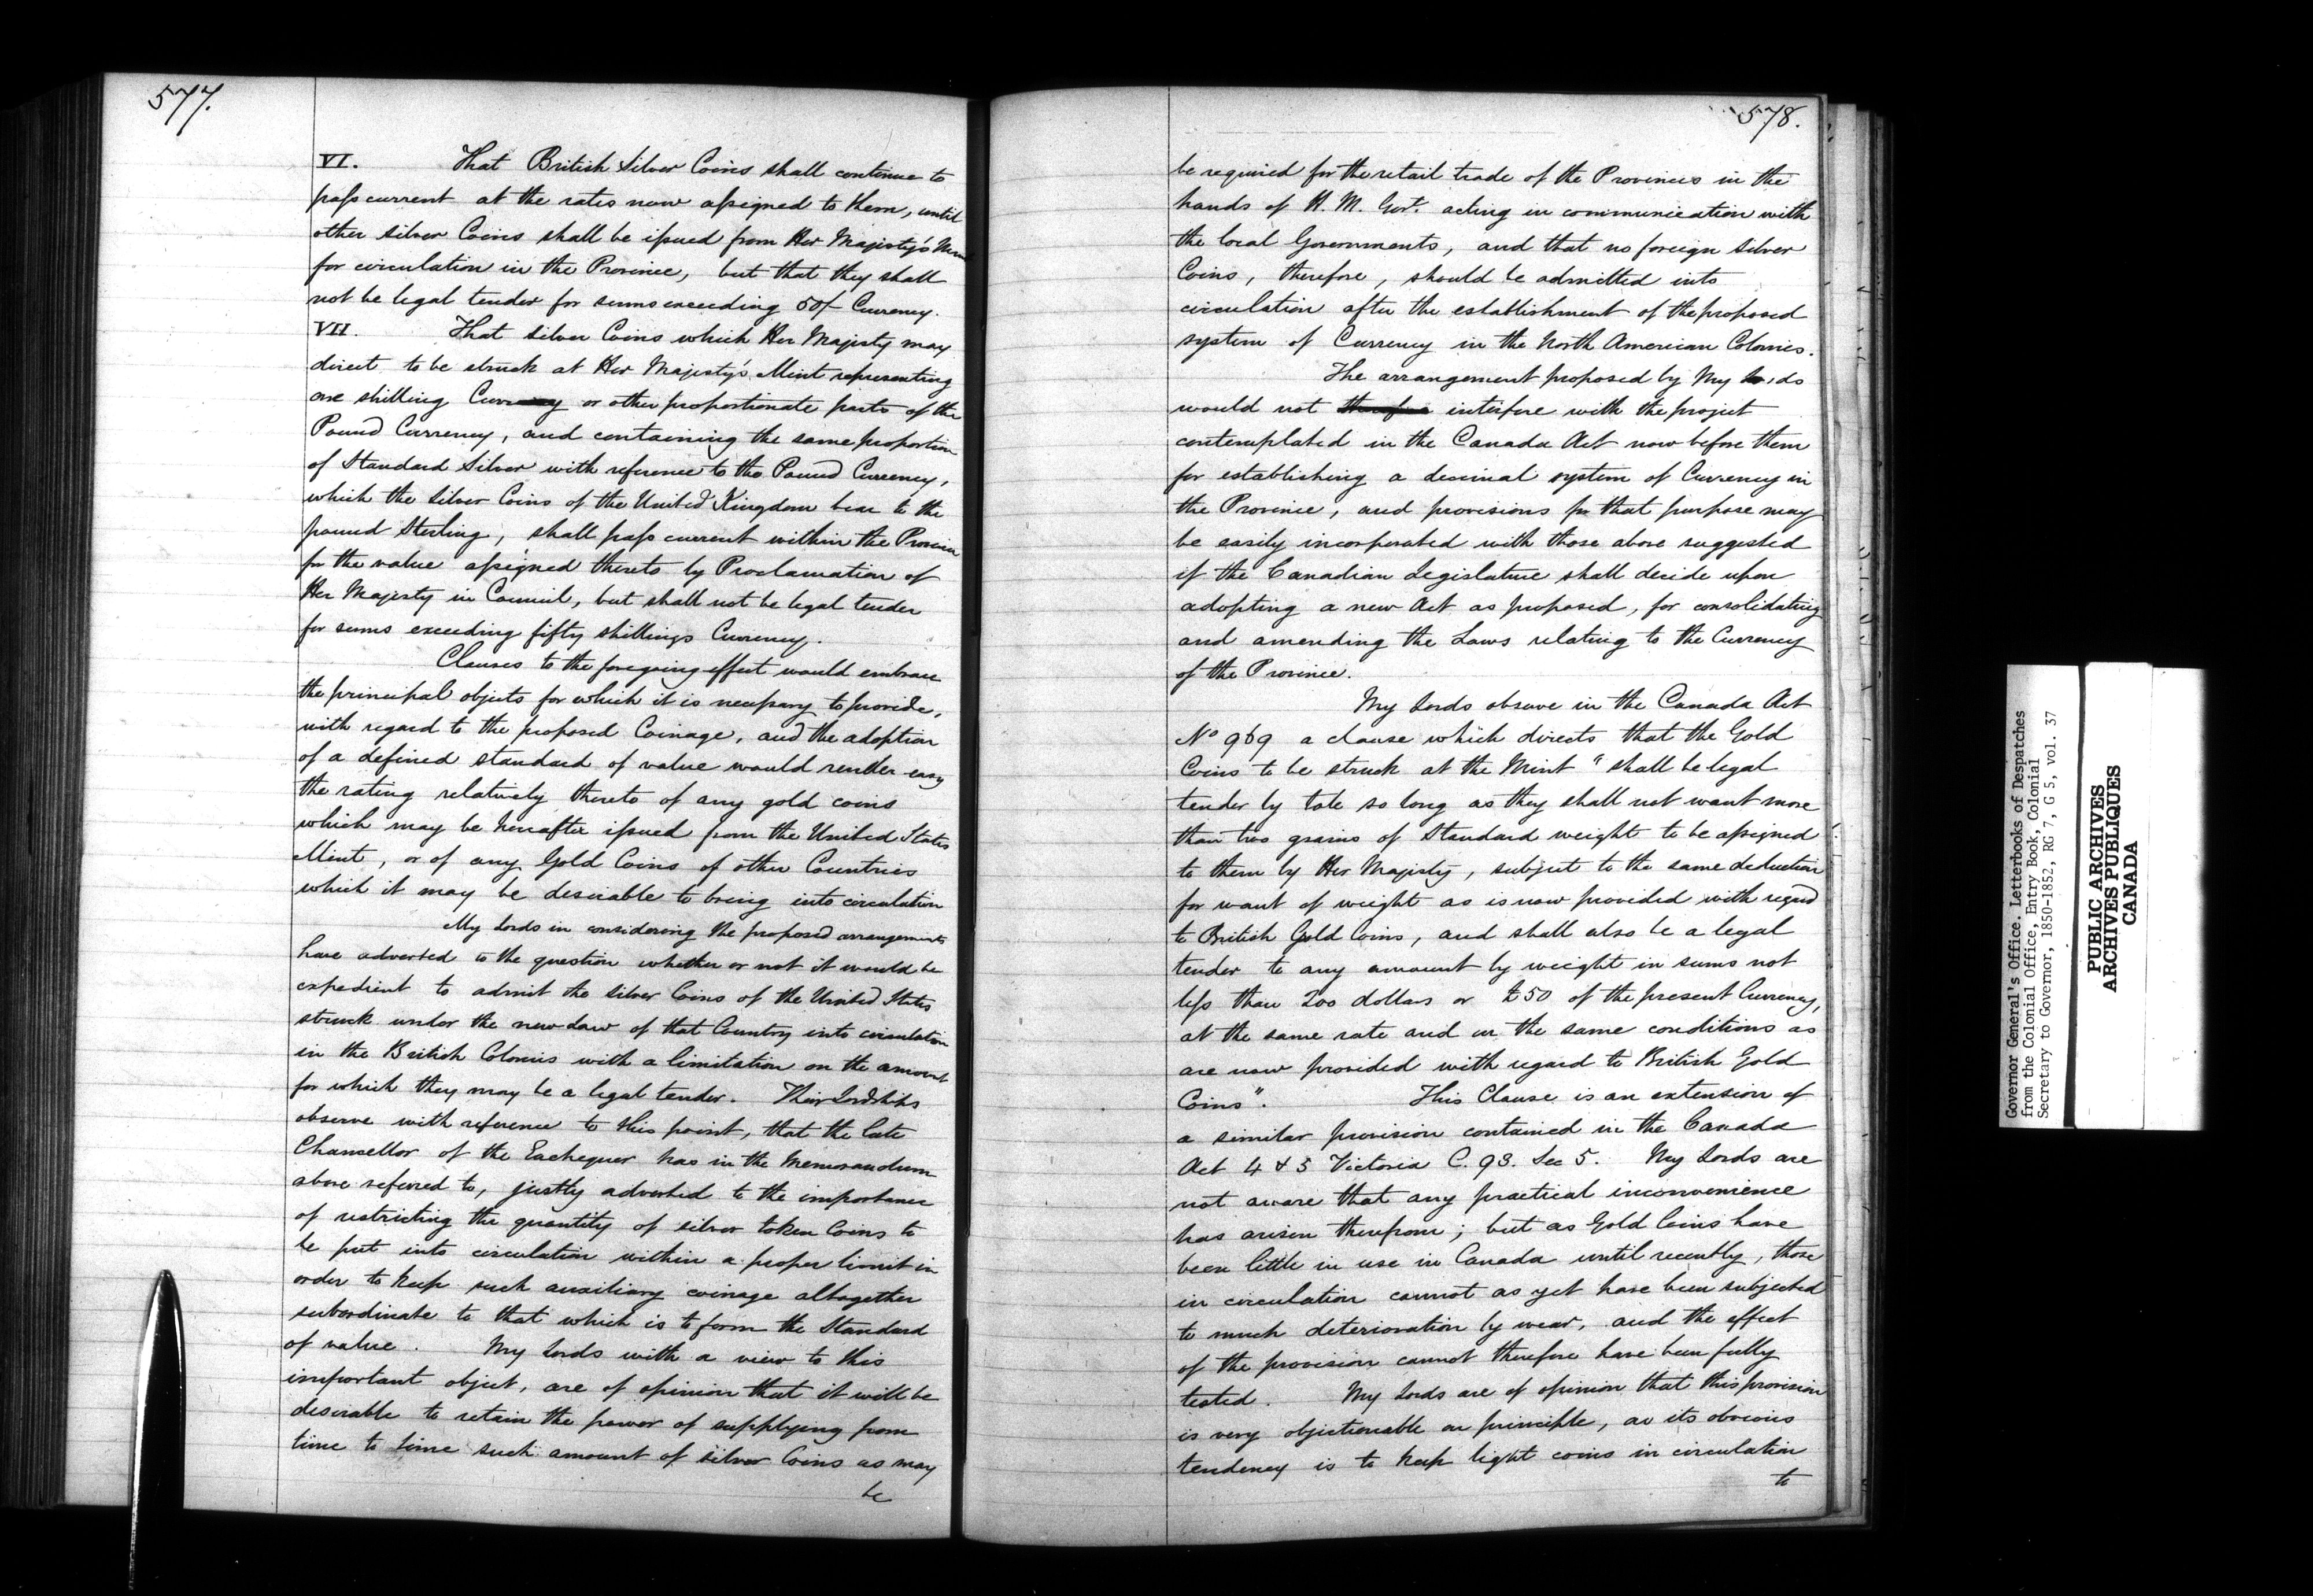 577.
VI. That British Silver Coins shall continue to
pass current at the rates now assigned to them, until
other silver Coins shall be issued from Her Majesty's Mint
for circulation in the Province, but that they shall
not be legal tender for sums exceeding 50/- Currency.
VII. That silver Coins which Her Majesty may
direct to be struck at Her Majesty's Mint representing
one shilling Currency or other proportionate parts of the
Pound Currency, and containing the same proportion
of Standard Silver with reference to the Pound Currency,
which the Silver Coins of the United Kingdom bear to the
pound Sterling, shall pass current within the Province
for the value assigned thereto by Proclamation of
Her Majesty in Council, but shall not be legal tender
for sums exceeding fifty shillings Currency.
Clauses to the foregoing effect would embrace
the principal objects for which it is necessary to provide,
with regard to the proposed Coinage, and the adoption
of a defined standard of value would render easy
the rating relatively thereto of any gold coins
which may be hereafter issued from the United States
Mint, or of any Gold Coins of other Countries
which it may be desirable to bring into circulation
My Lords in considering the proposed arrangements
have adverted to the question whether or not it would be
expedient to admit the silver Coins of the United States
struck under the new Law of that Country into circulation
in the British Colonies with a limitation on the amount
for which they may be a legal tender. Their Lordships
observe with reference to this point, that the late
Chancellor of the Exchequer has in the Memorandum
above referred to, justly adverted to the importance
of restricting the quantity of silver token Coins to
be put into circulation within a proper limit in
order to keep such auxiliary coinage altogether
subordinate to that which is to form the Standard
of value. My Lords with a view to this
important object, are of opinion that it will be
desirable to retain the power of supplying from
time to time such amount of silver Coins as may
be
578.
be required for the retail trade of the Provinces in the
hands of H. M. Govt. acting in communication with
the local Governments, and that no foreign silver
Coins, therefore, should be admitted into
circulation after the establishment of the proposed
system of Currency in the North American Colonies.
The arrangement proposed by My Lords
would not therefore interfere with the project
contemplated in the Canada Act now before them
for establishing a decimal system of Currency in
the Province, and provisions for that purpose may
be easily incorporated with those above suggested
if the Canadian Legislature shall decide upon
adopting a new Act as proposed, for consolidating
and amending the Laws relating to the Currency
of the Province.
My Lords observe in the Canada Act
No 969 a clause which directs that the Gold
Coins to be struck at the Mint "shall be legal
tender by tale so long as they shall not want more
than two grains of Standard weight to be assigned
to them by Her Majesty, subject to the same deduction
for want of weight as is now provided with regard
to British Gold Coins, and shall also be a legal
tender to any amount by weight in sums not
less than 200 dollars or £50 of the present Currency,
at the same rate and on the same conditions as
are now provided with regard to British Gold
Coins". This Clause is an extension of
a similar provision contained in the Canada
Act 4 & 5 Victoria C. 93. Sec 5. My Lords are
not aware that any practical inconvenience
has arisen therefrom; but as Gold Coins have
been little in use in Canada until recently, those
in circulation cannot as yet have been subjected
to much deterioration by wear, and the effect
of the provision cannot therefore have been fully
tested. My Lords are of opinion that this provision
is very objectionable on principle, as its obvious
tendency is to keep light coins in circulation
to
Governor General's Office. Letterbooks of Despatches
from the Colonial Office, Entry Book, Colonial
Secretary to Governor, 1850-1852, RG 7, G 5, vol. 37
PUBLIC ARCHIVES
ARCHIVES PUBLIQUES
CANADA